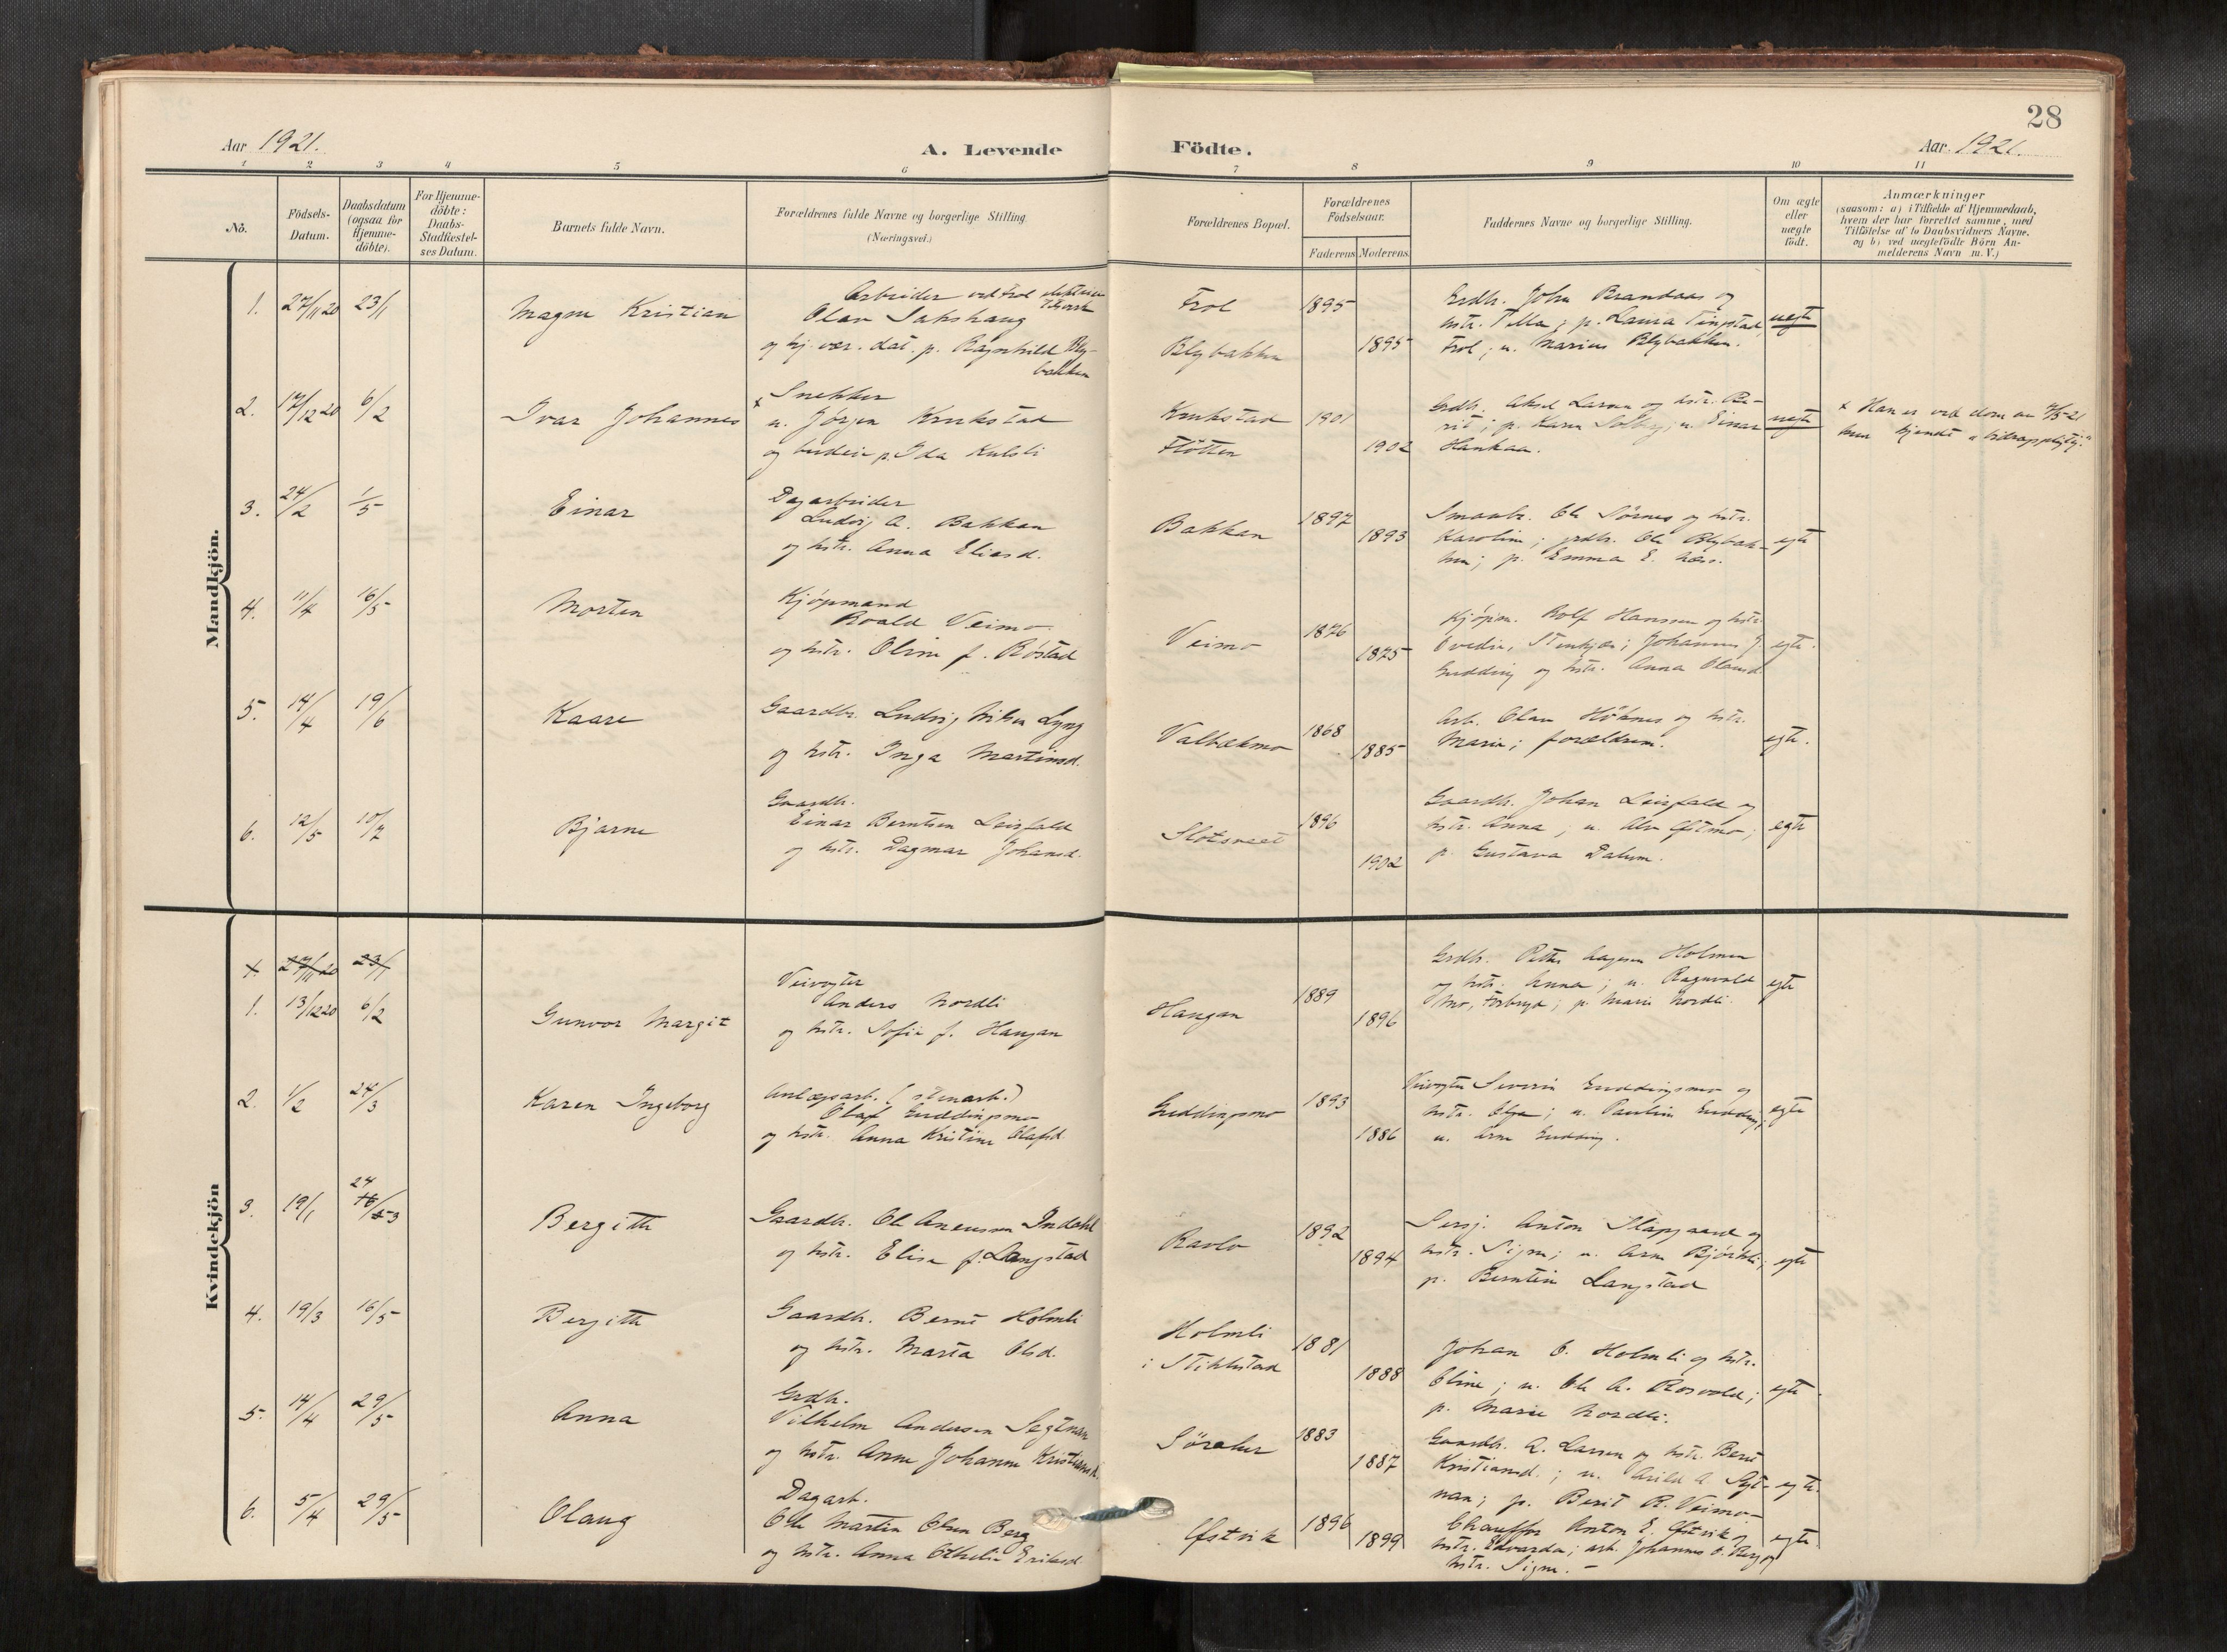 28
Aar 1921.
A. Levende Födte.
Aar 1921.
1 2 3 4 5 6 7 8 9 10 11
No.
Födsels-Datum.
Daabsdatum (ogsaa for Hjemme-döbte).
For Hjemme-döbte: Daabs-Stadfæstel-ses Datum.
Barnets fulde Navn.
Forældrenes fulde Navne og borgerlige Stilling.
(Næringsvei.)
Forældrenes Bopæl.
Forældrenes Födselsaar.
Faderens Moderens
Faddernes Navne og borgerlige Stilling.
Om ægte eller uægte født.
Anmærkninger
(saasom: a) i Tilfælde af Hjemmedaab,
hvem der har forrettet samme, med
Tilföielse af to Daabsvidners Navne.
og b) ved uægtefödte Börn An-
melderens Navn m. V.)
Mandkjön.
1. 27/11 20 23/1 Magne Kristian
Arbeider ved Frol
Olav Sakshaug
og hj. vær. dat. p. Ragnhild Bly-
bakken
Frol 1895
Blybakken 1895
Grdb. John Brandaas og
hstr. p. Laura Tingstad,
Frol; u. Marius Blybakken.
uegte
2. 17/12 20 6/2 Ivar Johannes
x Snekker
u. Jørgen Krukstad
og budeie p. Ida Kulsli
Krukstad 1901
Flötten 1902
Grdb. Aksel Larsen og hstr. Be-
rit; p. Karen Solberg; u. Einar
Hankaa.
uegte
x Han er ved dom av 4/5-21
kun kjendt "bidragspligtig".
3. 24/2 1/5 Einar
Dagarbeider
Ludvig A. Bakkan
og hstr. Anna Eliasd.
Bakkan 1897
1893
Smaabr. Ole Sörnes og hstr.
Karoline; grdbr. Ole Blybak-
ken; p. Emma E. Næss.
egte
4. 11/4 16/5 Morten
Kjøpmand
Roald Veimo
og hstr. Oline f. Røstad
Veimo 1876
1875
Kjøpm. Rolf Hanssen og hstr.
Ovedie, Stenkjær; Johannes J.
Gudding og hstr. Anna Olausd.
egte.
5. 14/4 19/6 Kaare
Gaardbr. Ludvig Nilsen Lyng
og hstr. Inga Martinsd.
Valbækmo 1868
1885
Arb. Olav Höknes og hstr.
Marie; forældrene.
egte.
6. 12/5 10/7 Bjarne
Gaardb.
Einar Berntsen Leirfald
og hstr. Dagmar Johansd.
Slotsveet 1896
1902
Gaardb. Johan Leirfald og
hstr. Anna; u. Alv Østmo;
p. Gustava Dalum.
egte
Kvindekjön
1. 27/11 20 23/1
1. 13/12 20 6/2 Gunvor Margit
Veivogter
Anders Nordli
og hstr. Sofie f. Haugan
Haugan 1889
1896
Grdb. Petter Aagesen Holmen
og hstr. Anna; u. Ragnvald
Mo, Forbregd; p. Marie Nordli.
egte
2. 1/2 24/3 Karen Ingeborg
Anlægsarb. (stenarb.)
Olaf Guddingsmo
og hstr. Anna Kristine Olafsd.
Guddingsmo 1893
1886
Veivogter Severin Guddingsmo og
hstr. Olga; u. Paulin Gudding;
u. Arne Gudding.
egte
3. 19/1 24/3 Bergitte
Gaardb. Ole Aneussen Indahl
og hstr. Elise f. Langstad
Ravlo 1892
1894
Sersj. Anton Slapgaard og
hstr. Signe; u. Arne Björkli;
p. Berntine Langstad
egte
4. 19/3 16/5 Bergitte
Gaardb. Bernt Holmli
og hstr. Marta Olsd.
Holmli
i Stiklestad
1881
1888
Johan O. Holmli og hstr.
Oline; u. Ole A. Rosvold;
p. Marie Nordli.
egte.
5. 14/4 29/5 Anna
Grdb.
Vilhelm Andersen Segtnan
og hstr. Anne Johanne Kristiansd.
Söraker 1883
1887
Gaardb. A. Larsen og hstr. Berit
Kristiansd.; u. Arild A. Segt-
nan; p. Berit R. Veimo.
egte.
6. 5/4 29/5 Olaug
Dagarb.
Ole Martin Olsen Berg
og hstr. Anna Othelie Eriksd.
Østvik 1896
1899
Chauffør Anton E. Østvik og
hstr. Edvarda; arb. Johannes O. Berg og
hstr. Signe. –
egte.